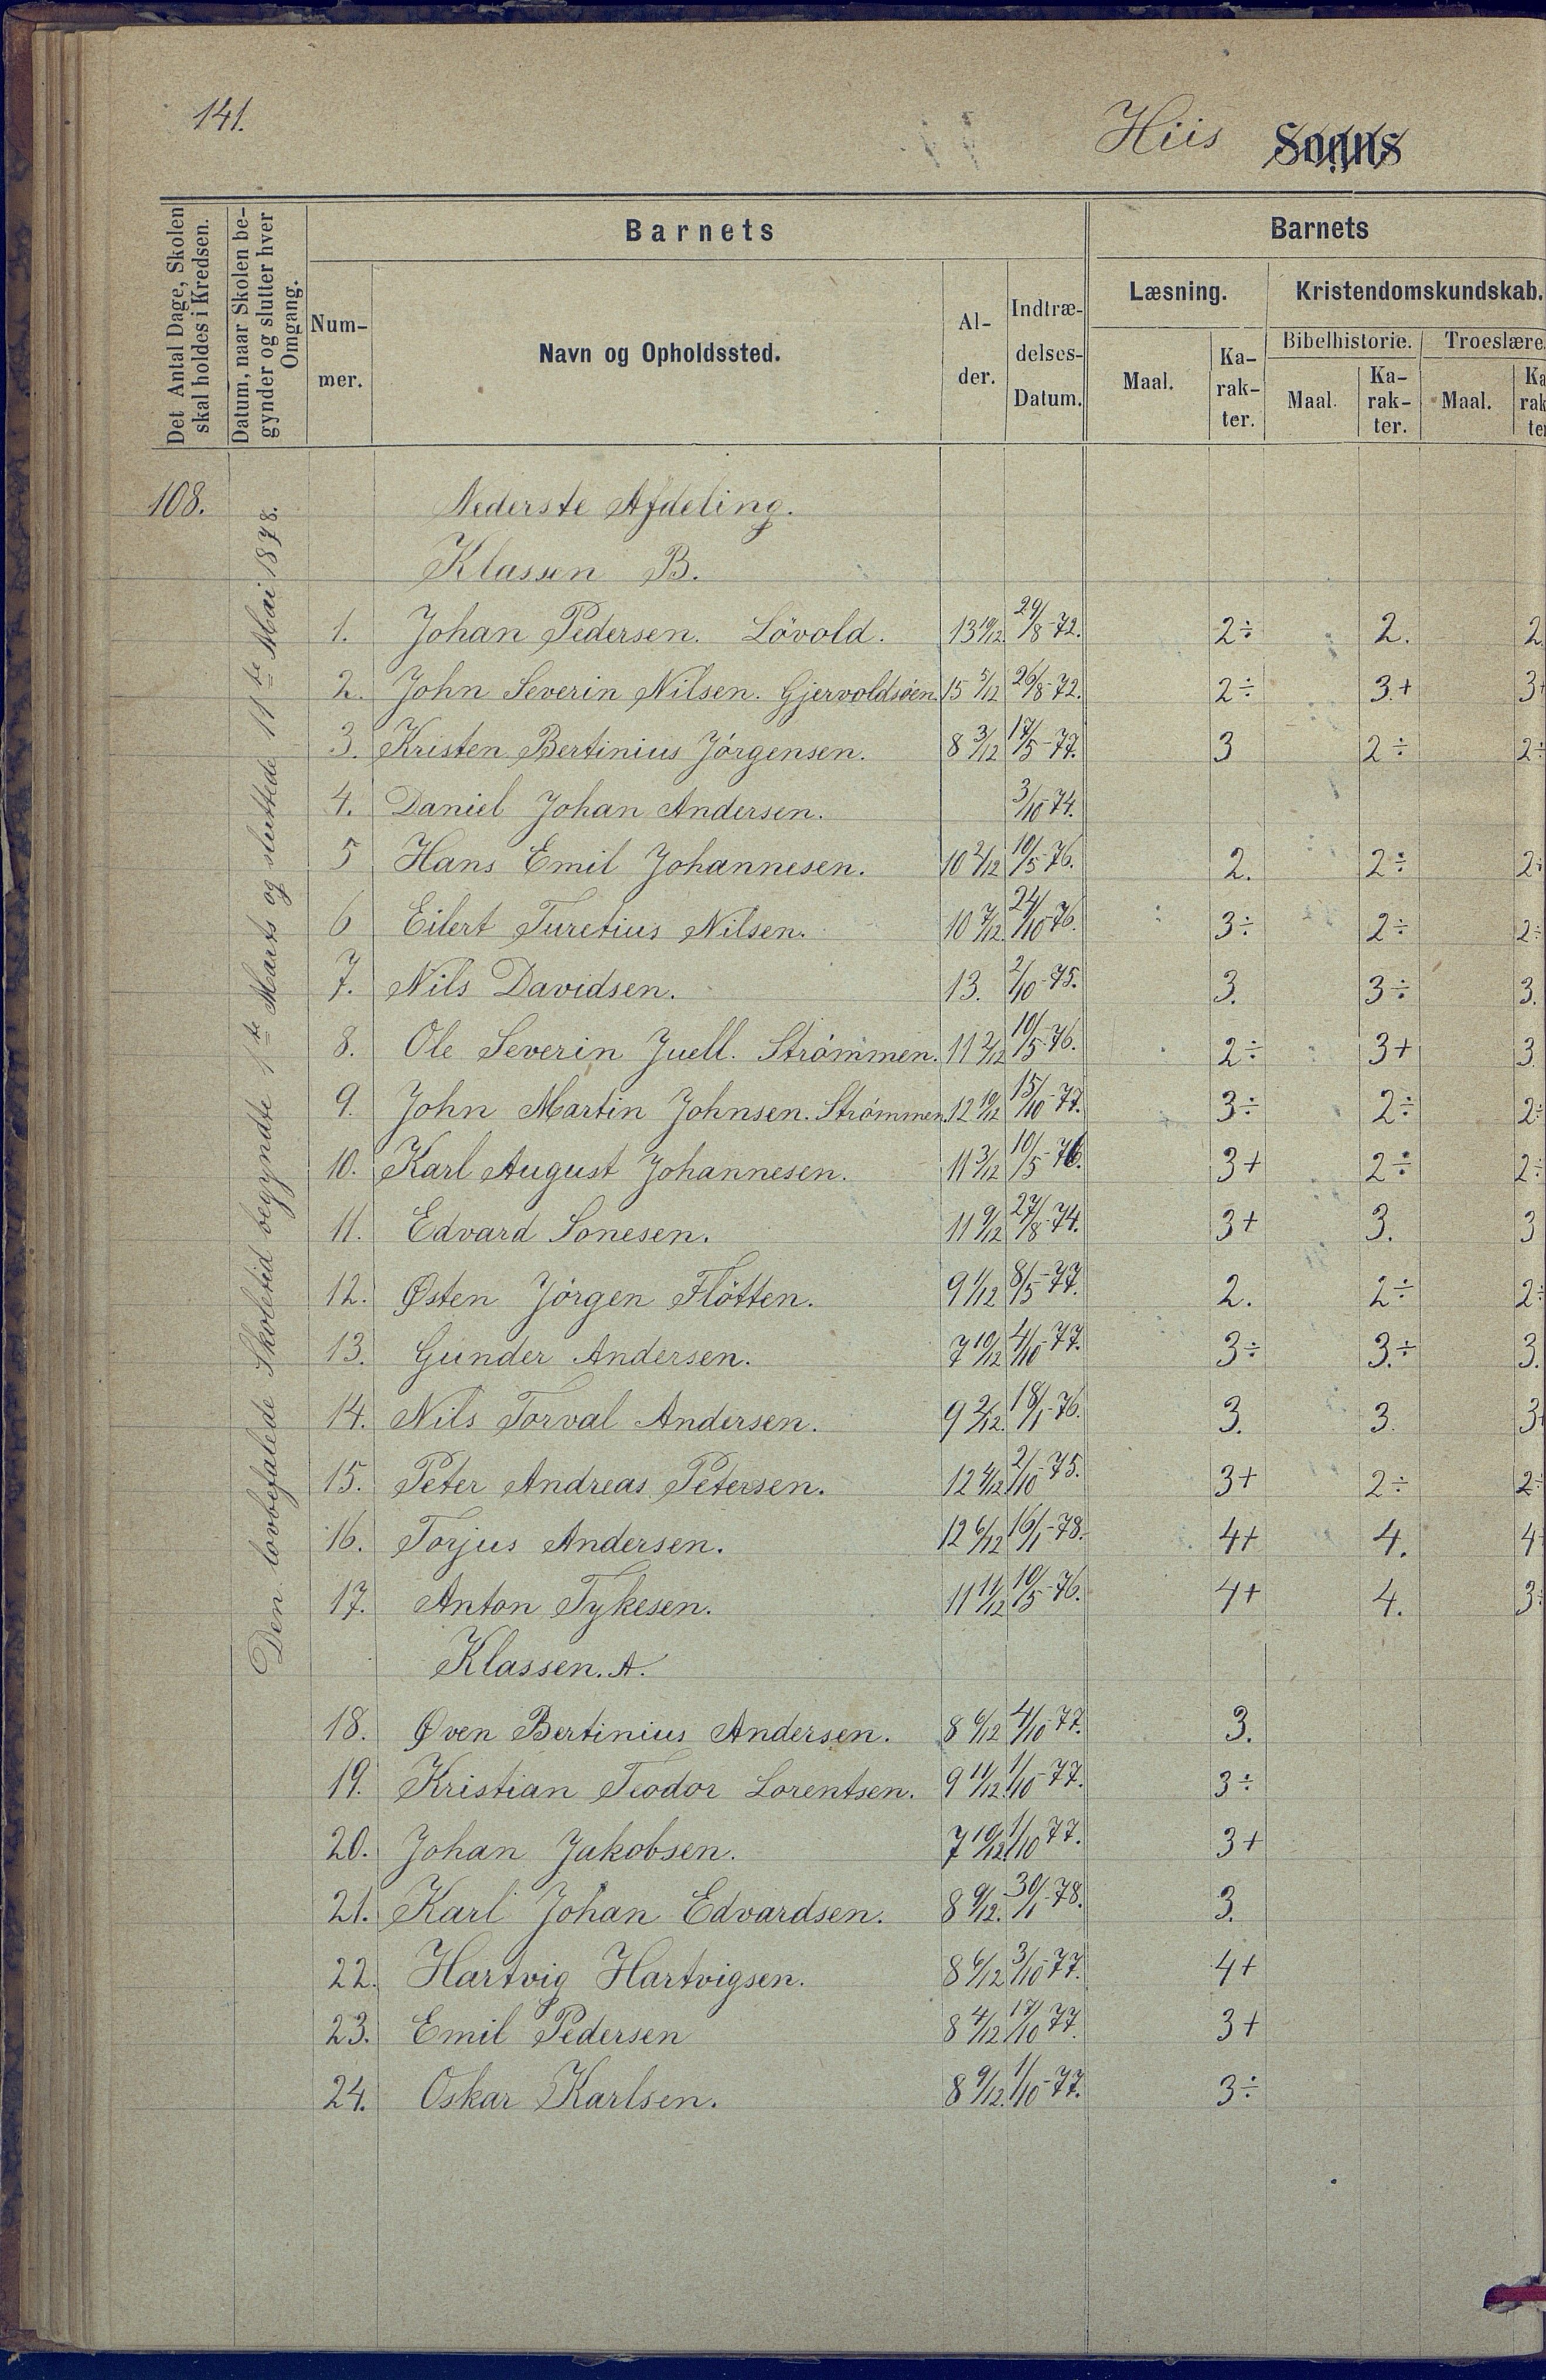 141.
Hiis Sogns
Det Antal Dage, Skolen skal holdes i Kredsen.
Datum, naar Skolen begynder og slutter hver Omgang.
Barnets
Barnets
Nummer.
Navn og Opholdssted.
Alder.
Indtrædelses-Datum.
Læsning.
Kristendomskundskab.
Bibelhistorie.
Troeslære
Maal.
Karakter.
Maal.
Karakter.
Maal.
Ka
rak
te
108.
Den lovbefalede Skoletid begyndte 1te Marts og sluttede 11te Mai 1878.
Nederste Afdeling.
Klassen B.
1. Johan Pedersen. Lövold. 13 10/12. 29/8-72. 2÷ 2. 2.
2. John Severin Nilsen. Gjervoldsöen. 15 5/12 26/8-72. 2÷ 3+ 3+
3. Kristen Bertinius Jörgensen. 8 3/12 17/5-77. 3 2÷ 2÷
4. Daniel Johan Andersen. 3/10-74.
5 Hans Emil Johannesen. 10 2/12 10/5-76. 2. 2÷ 2÷
6 Eilert Turetius Nilsen. 10 7/12. 24/10-76. 3÷ 2÷ 2÷
7. Nils Davidsen. 13. 2/10-75. 3. 3÷ 3.
8. Ole Severin Juell. Strömmen. 11 2/12 10/5-76. 2÷ 3+ 3.
9. John Martin Johnsen. Strömmen. 12 10/12 15/10-77. 3÷ 2÷ 2÷
10. Karl August Johannesen. 11 3/12 10/5-76. 3+ 2÷ 2÷
11. Edvard Sonesen. 11 9/12 27/8-74. 3+ 3. 3
12. Østen Jörgen Flötten. 9 1/12 8/5-77. 2. 2÷ 2÷
13. Gunder Andersen. 7 10/12 4/10-77. 3÷ 3.÷ 3.
14. Nils Torval Andersen. 9 2/12. 18/1-76. 3. 3. 3+
15. Peter Andreas Petersen. 12 4/12 2/10-75. 3+ 2÷ 2÷
16. Torjus Andersen. 12 6/12 16/1-78. 4+ 4. 4+
17. Anton Tykesen. 11 11/12 10/5-76. 4+ 4. 3÷
Klassen. A.
18. Øven Bertinius Andersen. 8 6/12 4/10-77. 3.
19. Kristian Teodor Lorentsen. 9 11/12. 1/10-77. 3÷
20. Johan Jakobsen. 7 10/12. 1/10 77. 3+
21. Karl Johan Edvardsen. 8 9/12. 30/1-78. 3.
22. Hartvig Hartvigsen. 8 6/12 3/10-77. 4+
23. Emil Pedersen 8 4/12 17/10 77. 3+
24. Oskar Karlsen. 8 9/12. 1/10-77. 3÷